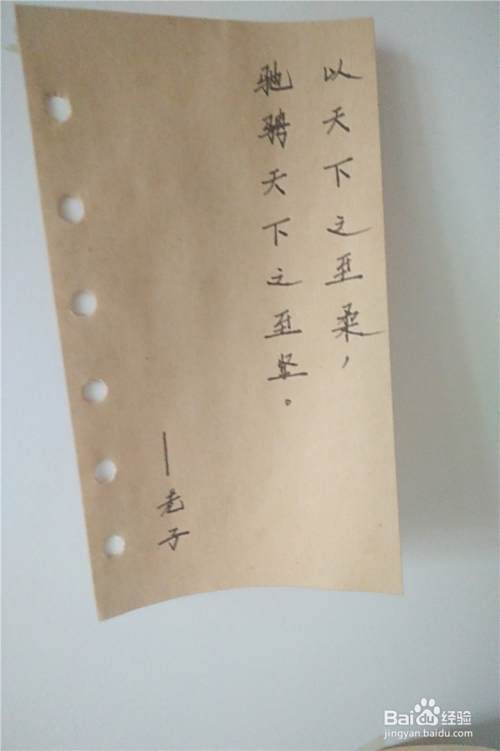 以天下之至柔，
驰骋天下之至坚。
—老子
Baidu经验
jingyan.baidu.com